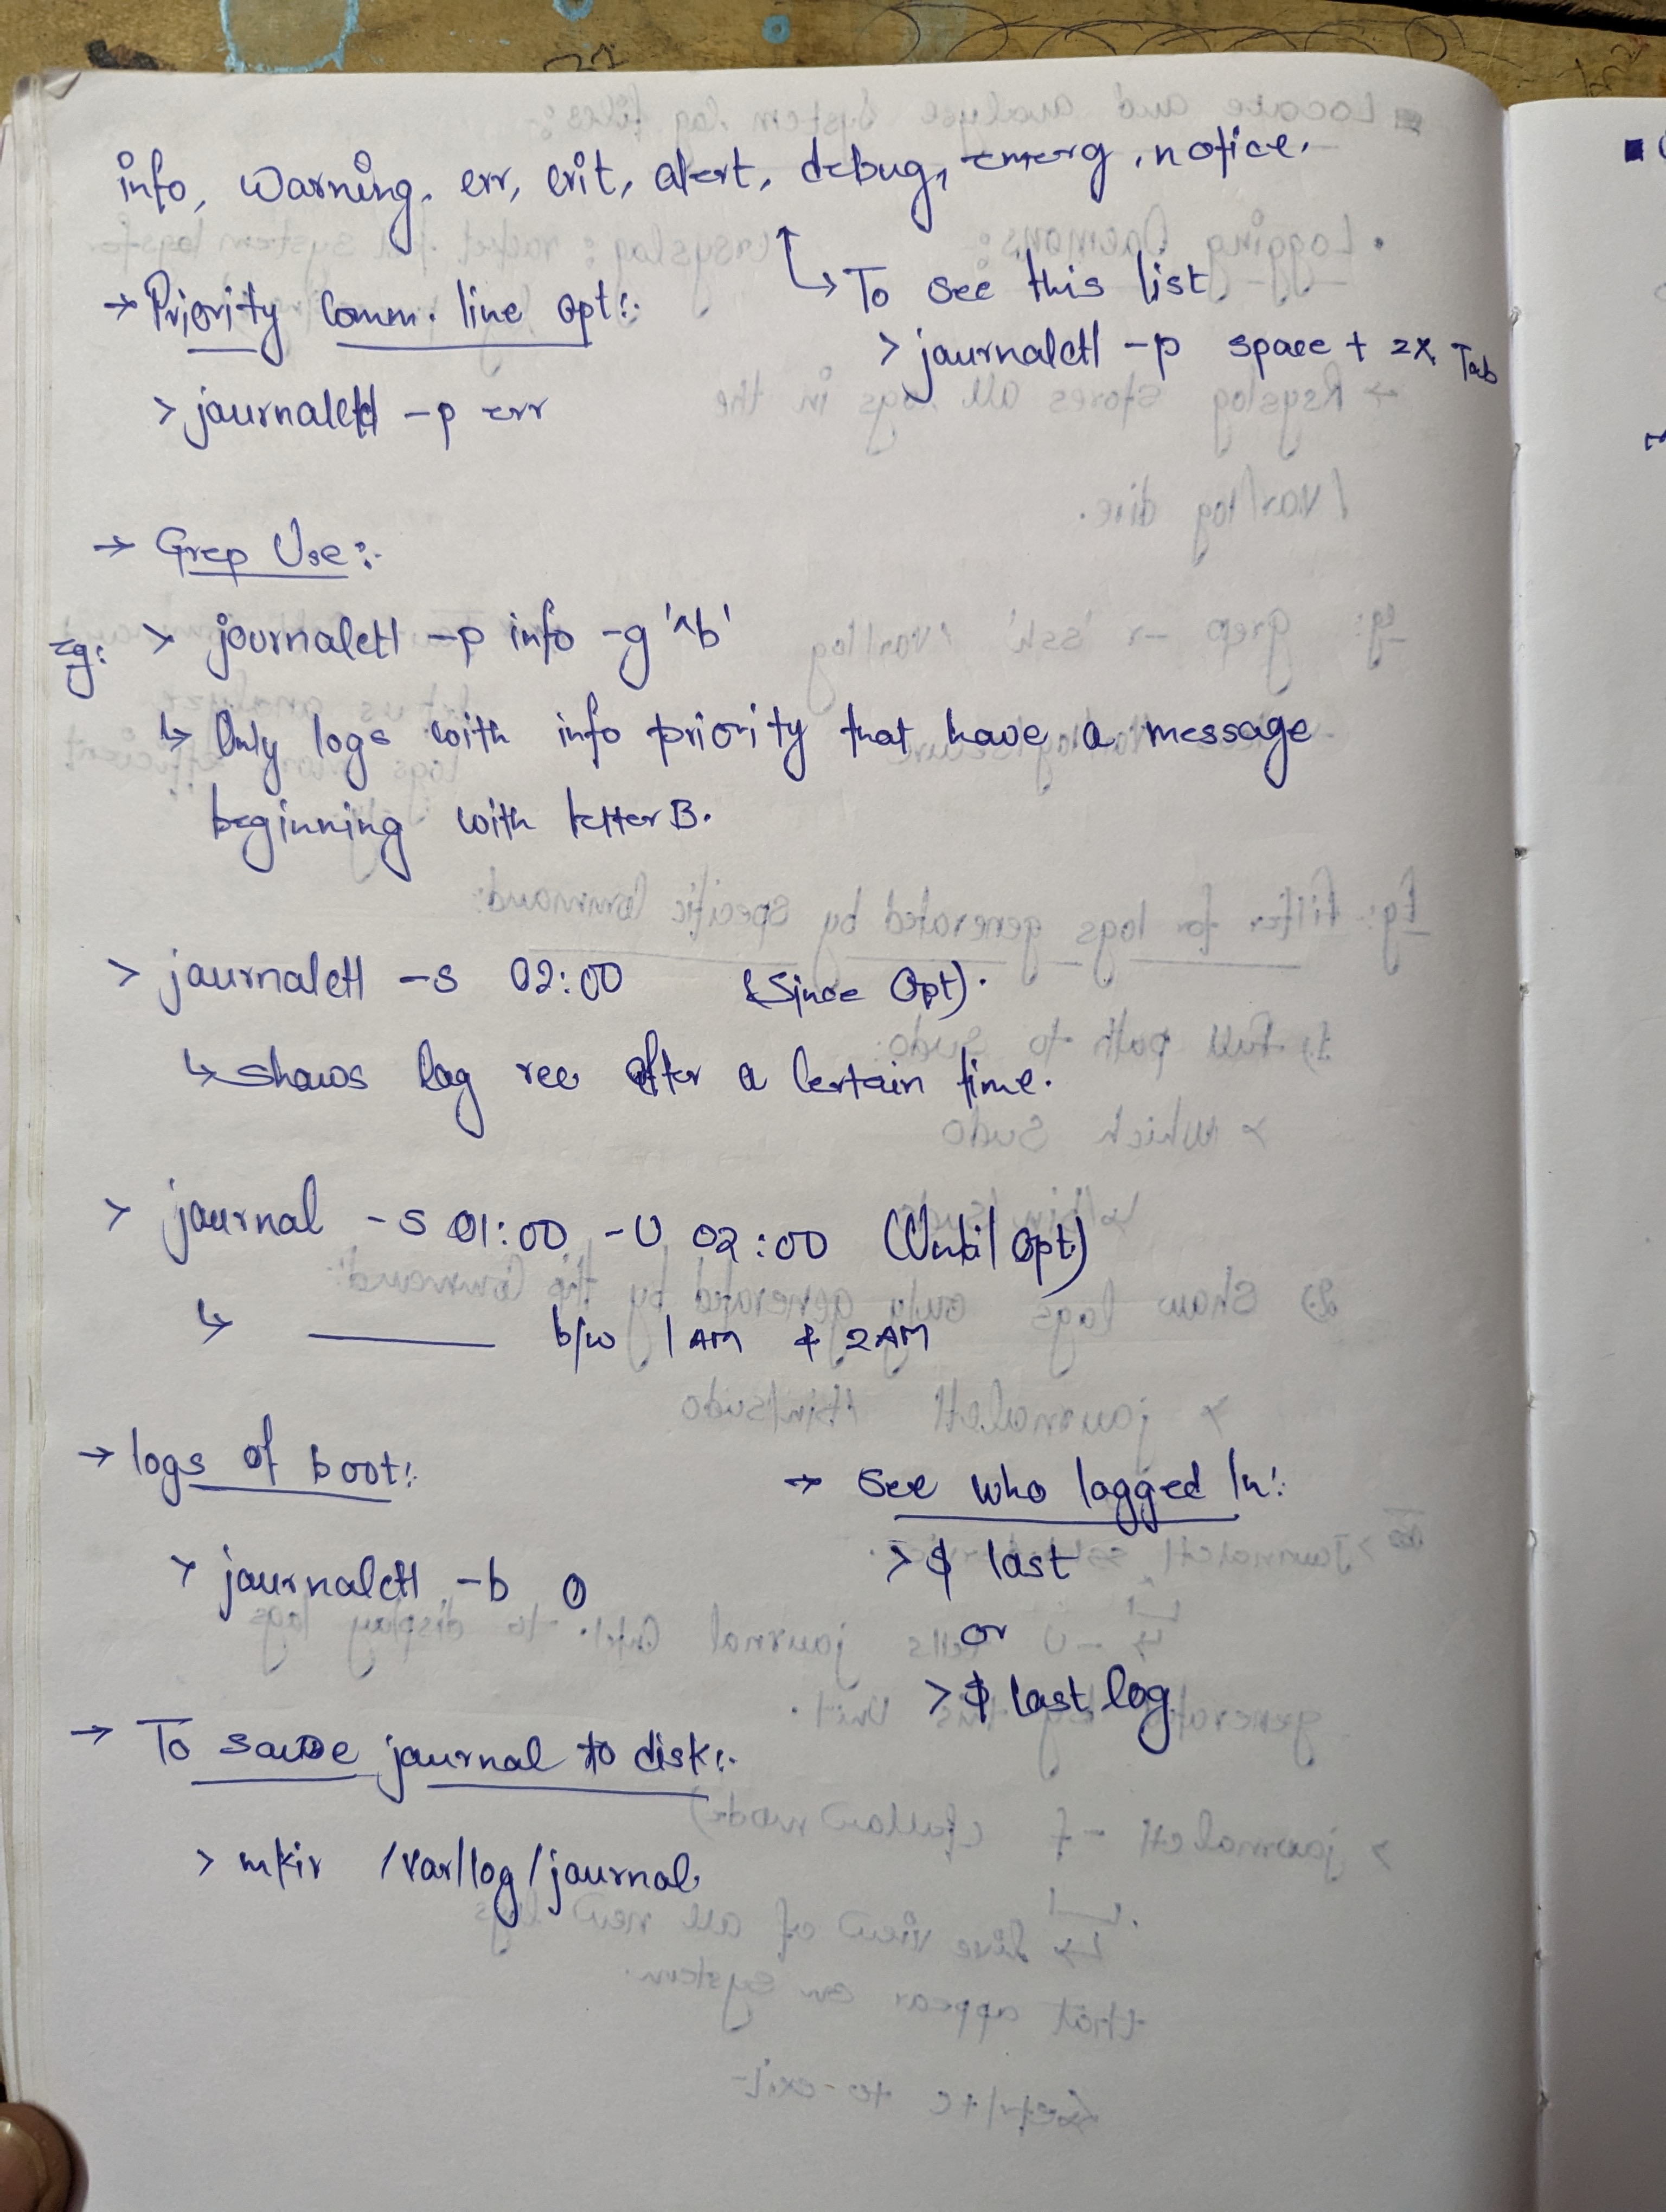 info, warning, err, crit, alert, debug, emerg, notice.
→ Priority Comm. line opt:.
↳ To see this list
> journalctl -p space + 2x Tab
> journalctl -p err
→ Grep Use:.
Eg: > journalctl -p info -g '^b'
↳ Only logs with info priority that have a message
beginning with letter B.
> journalctl -s 02:00 (Since Opt).
↳ shows log rec after a certain time.
> journal -S 01:00 -U 02:00 (Until opt)
↳ ——— b/w 1 AM & 2 AM
→ logs of boot:.
> journalctl -b 0
→ See who logged In:.
> $ last
or
> $ last log
→ To save journal to disk:.
> mkir /var/log/journal.